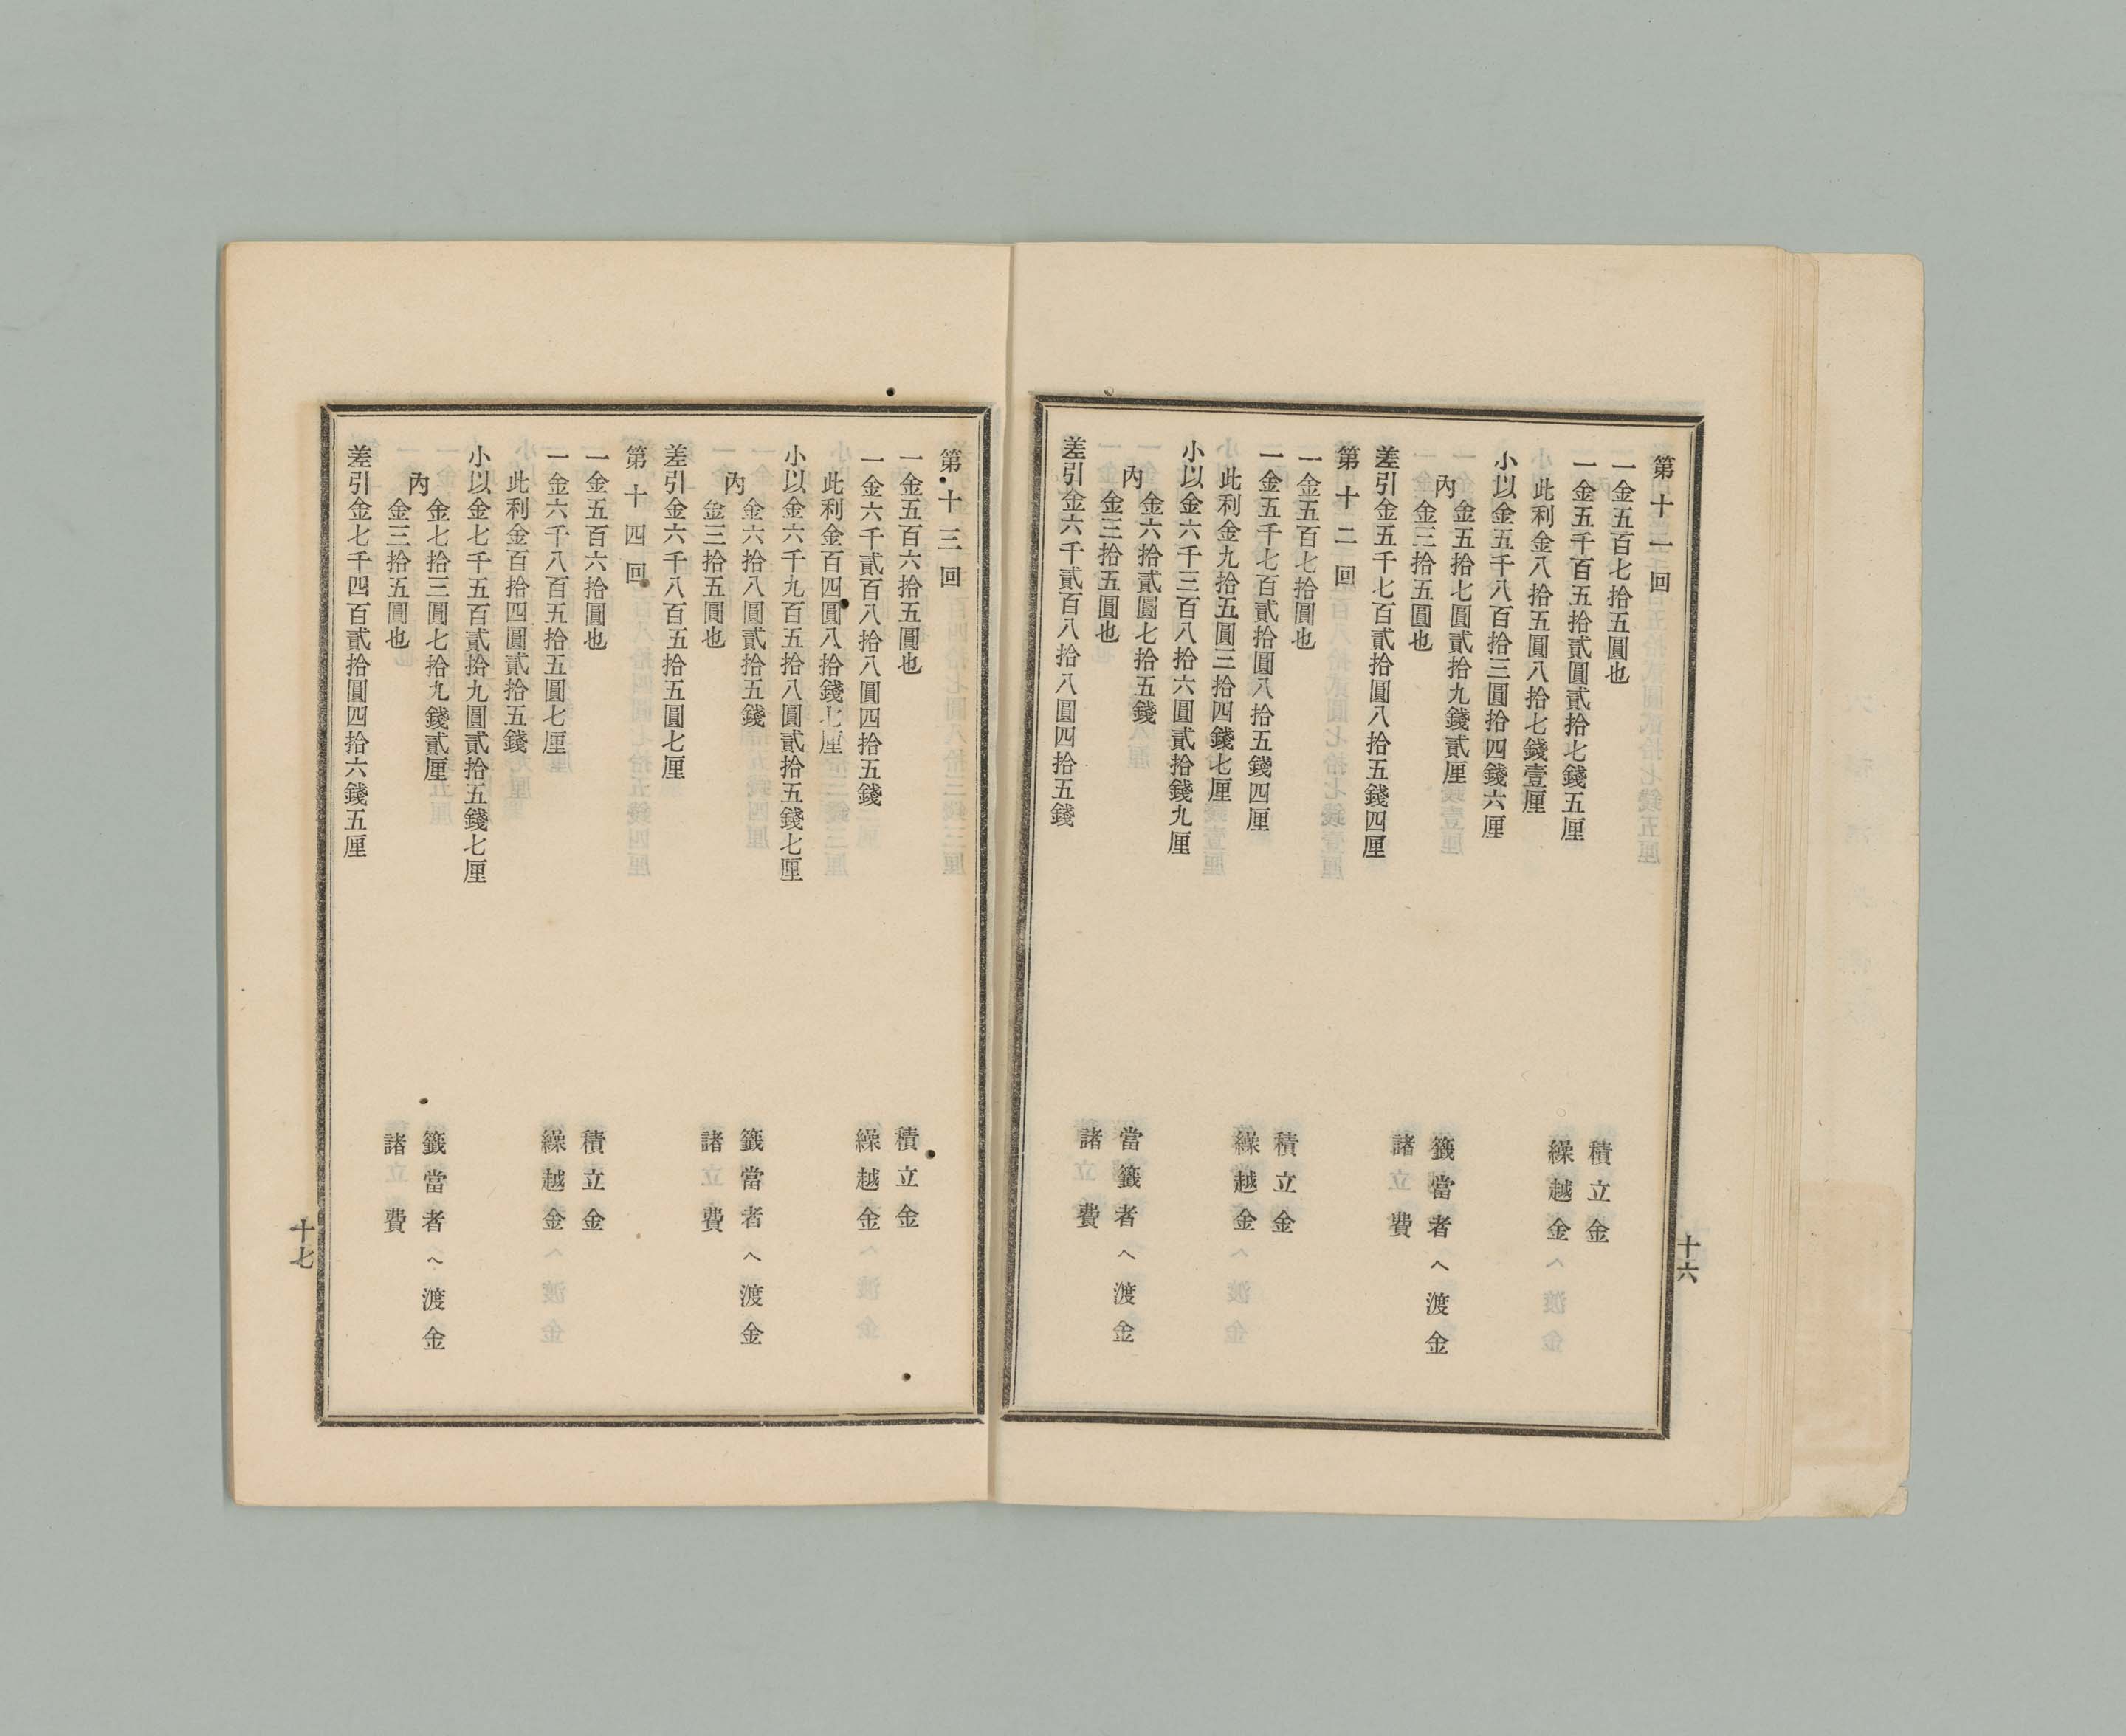 第十一回
一金五百七拾五圓也　積立金
一金五千百五拾貳圓貳拾七錢五厘　繰越金
此利金八拾五圓八拾七錢壹厘
小以金五千八百拾三圓拾四錢六厘
內
金五拾七圓貳拾九錢貳厘　籤當者へ渡金
金三拾五圓也　諸費
差引金五千七百貳拾圓八拾五錢四厘
第十二回
一金五百七拾圓也　積立金
一金五千七百貳拾圓八拾五錢四厘　繰越金
此利金九拾五圓三拾四錢七厘
小以金六千三百八拾六圓貳拾錢九厘
內
金六拾貳圓七拾五錢　當籤者へ渡金
金三拾五圓也　諸費
差引金六千貳百八拾八圓四拾五錢
十六
第十三回
一金五百六拾五圓也　積立金
一金六千貳百八拾八圓四拾五錢　繰越金
此利金百四圓八拾錢七厘
小以金六千九百五拾八圓貳拾五錢七厘
內
金六拾八圓貳拾五錢　籤當者へ渡金
金三拾五圓也　諸費
差引金六千八百五拾五圓七厘
第十四回
一金五百六拾圓也　積立金
一金六千八百五拾五圓七厘　繰越金
此利金百拾四圓貳拾五錢
小以金七千五百貳拾九圓貳拾五錢七厘
內
金七拾三圓七拾九錢貳厘　籤當者へ渡金
金三拾五圓也　諸費
差引金七千四百貳拾圓四拾六錢五厘
十七